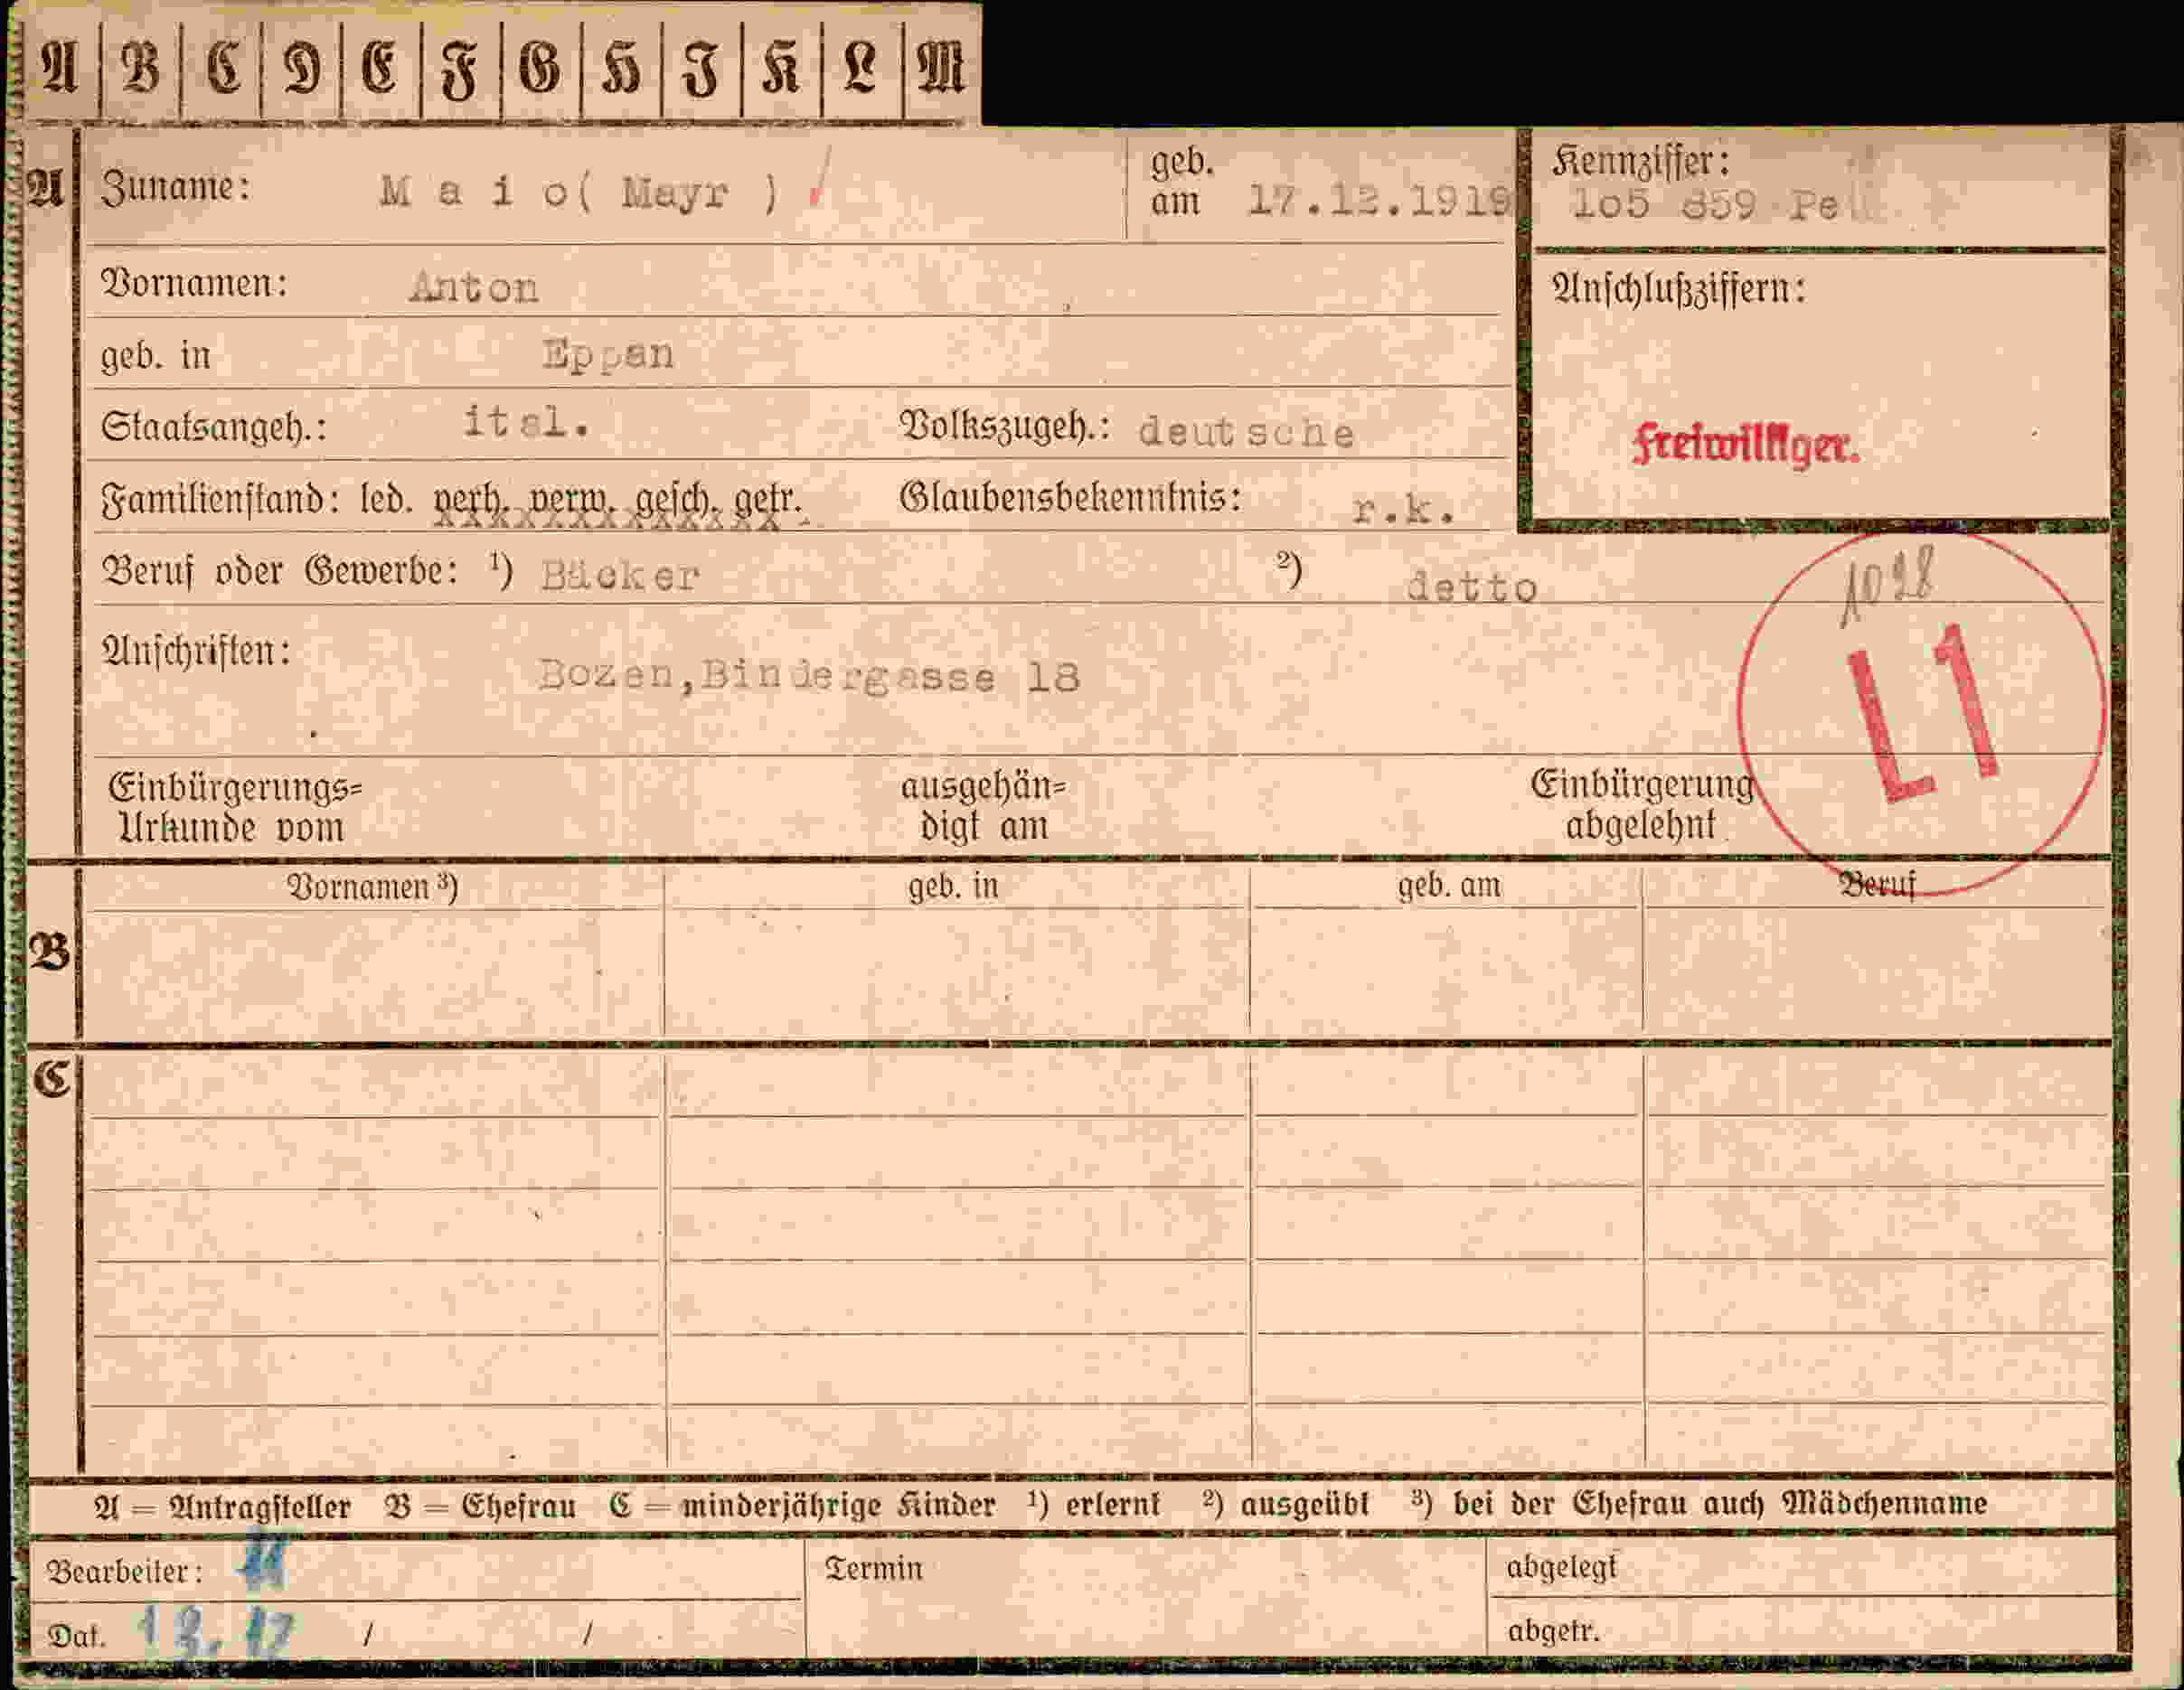 A B C D E F G H I K L M
A Zuname: M a i o ( Mayr ) geb. am 17.12.1919 Kennziffer: 105 859 Pe
Vornamen: Anton Anschlußziffern:
geb. in Eppan
Staatsangeh.: ital. Volkszugeh.: deutsche freiwilliger.
Familienstand: led. verh. verw. gesch. getr. Glaubensbekenntnis: r.k.
Beruf oder Gewerbe: ¹) Bäcker ²) detto 1098
Anschriften: Bozen,Bindergasse 18 L1
Einbürgerungs= ausgehän= Einbürgerung
Urkunde vom digt am abgelehnt
Vornamen ³) geb. in geb. am Beruf
B
C
A = Antragsteller B = Ehefrau C = minderjährige Kinder ¹) erlernt ²) ausgeübt ³) bei der Ehefrau auch Mädchenname
Bearbeiter: Termin abgelegt
Dat. 13. 12 / / abgetr.